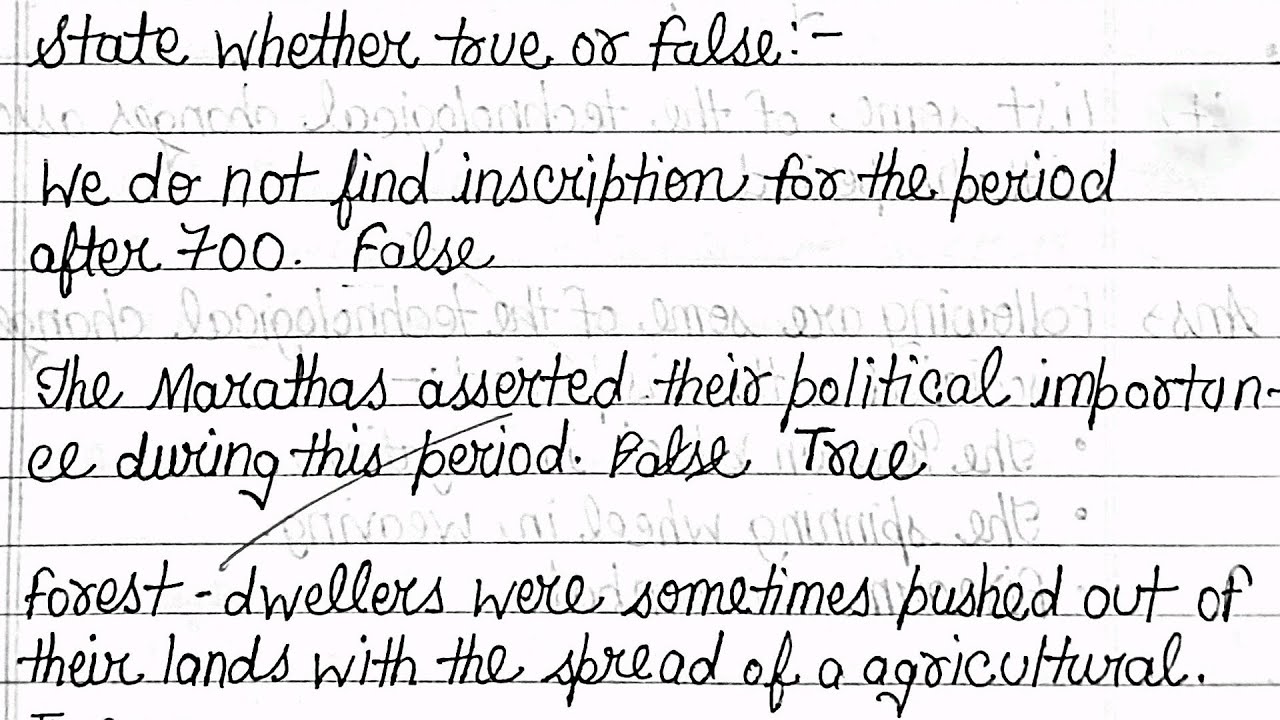 State whether true or false:-
We do not find inscription for the period
after 700. False
The Marathas asserted their political importan-
ce during this period. False True
Forest-dwellers were sometimes pushed out of
their lands with the spread of a agricultural.